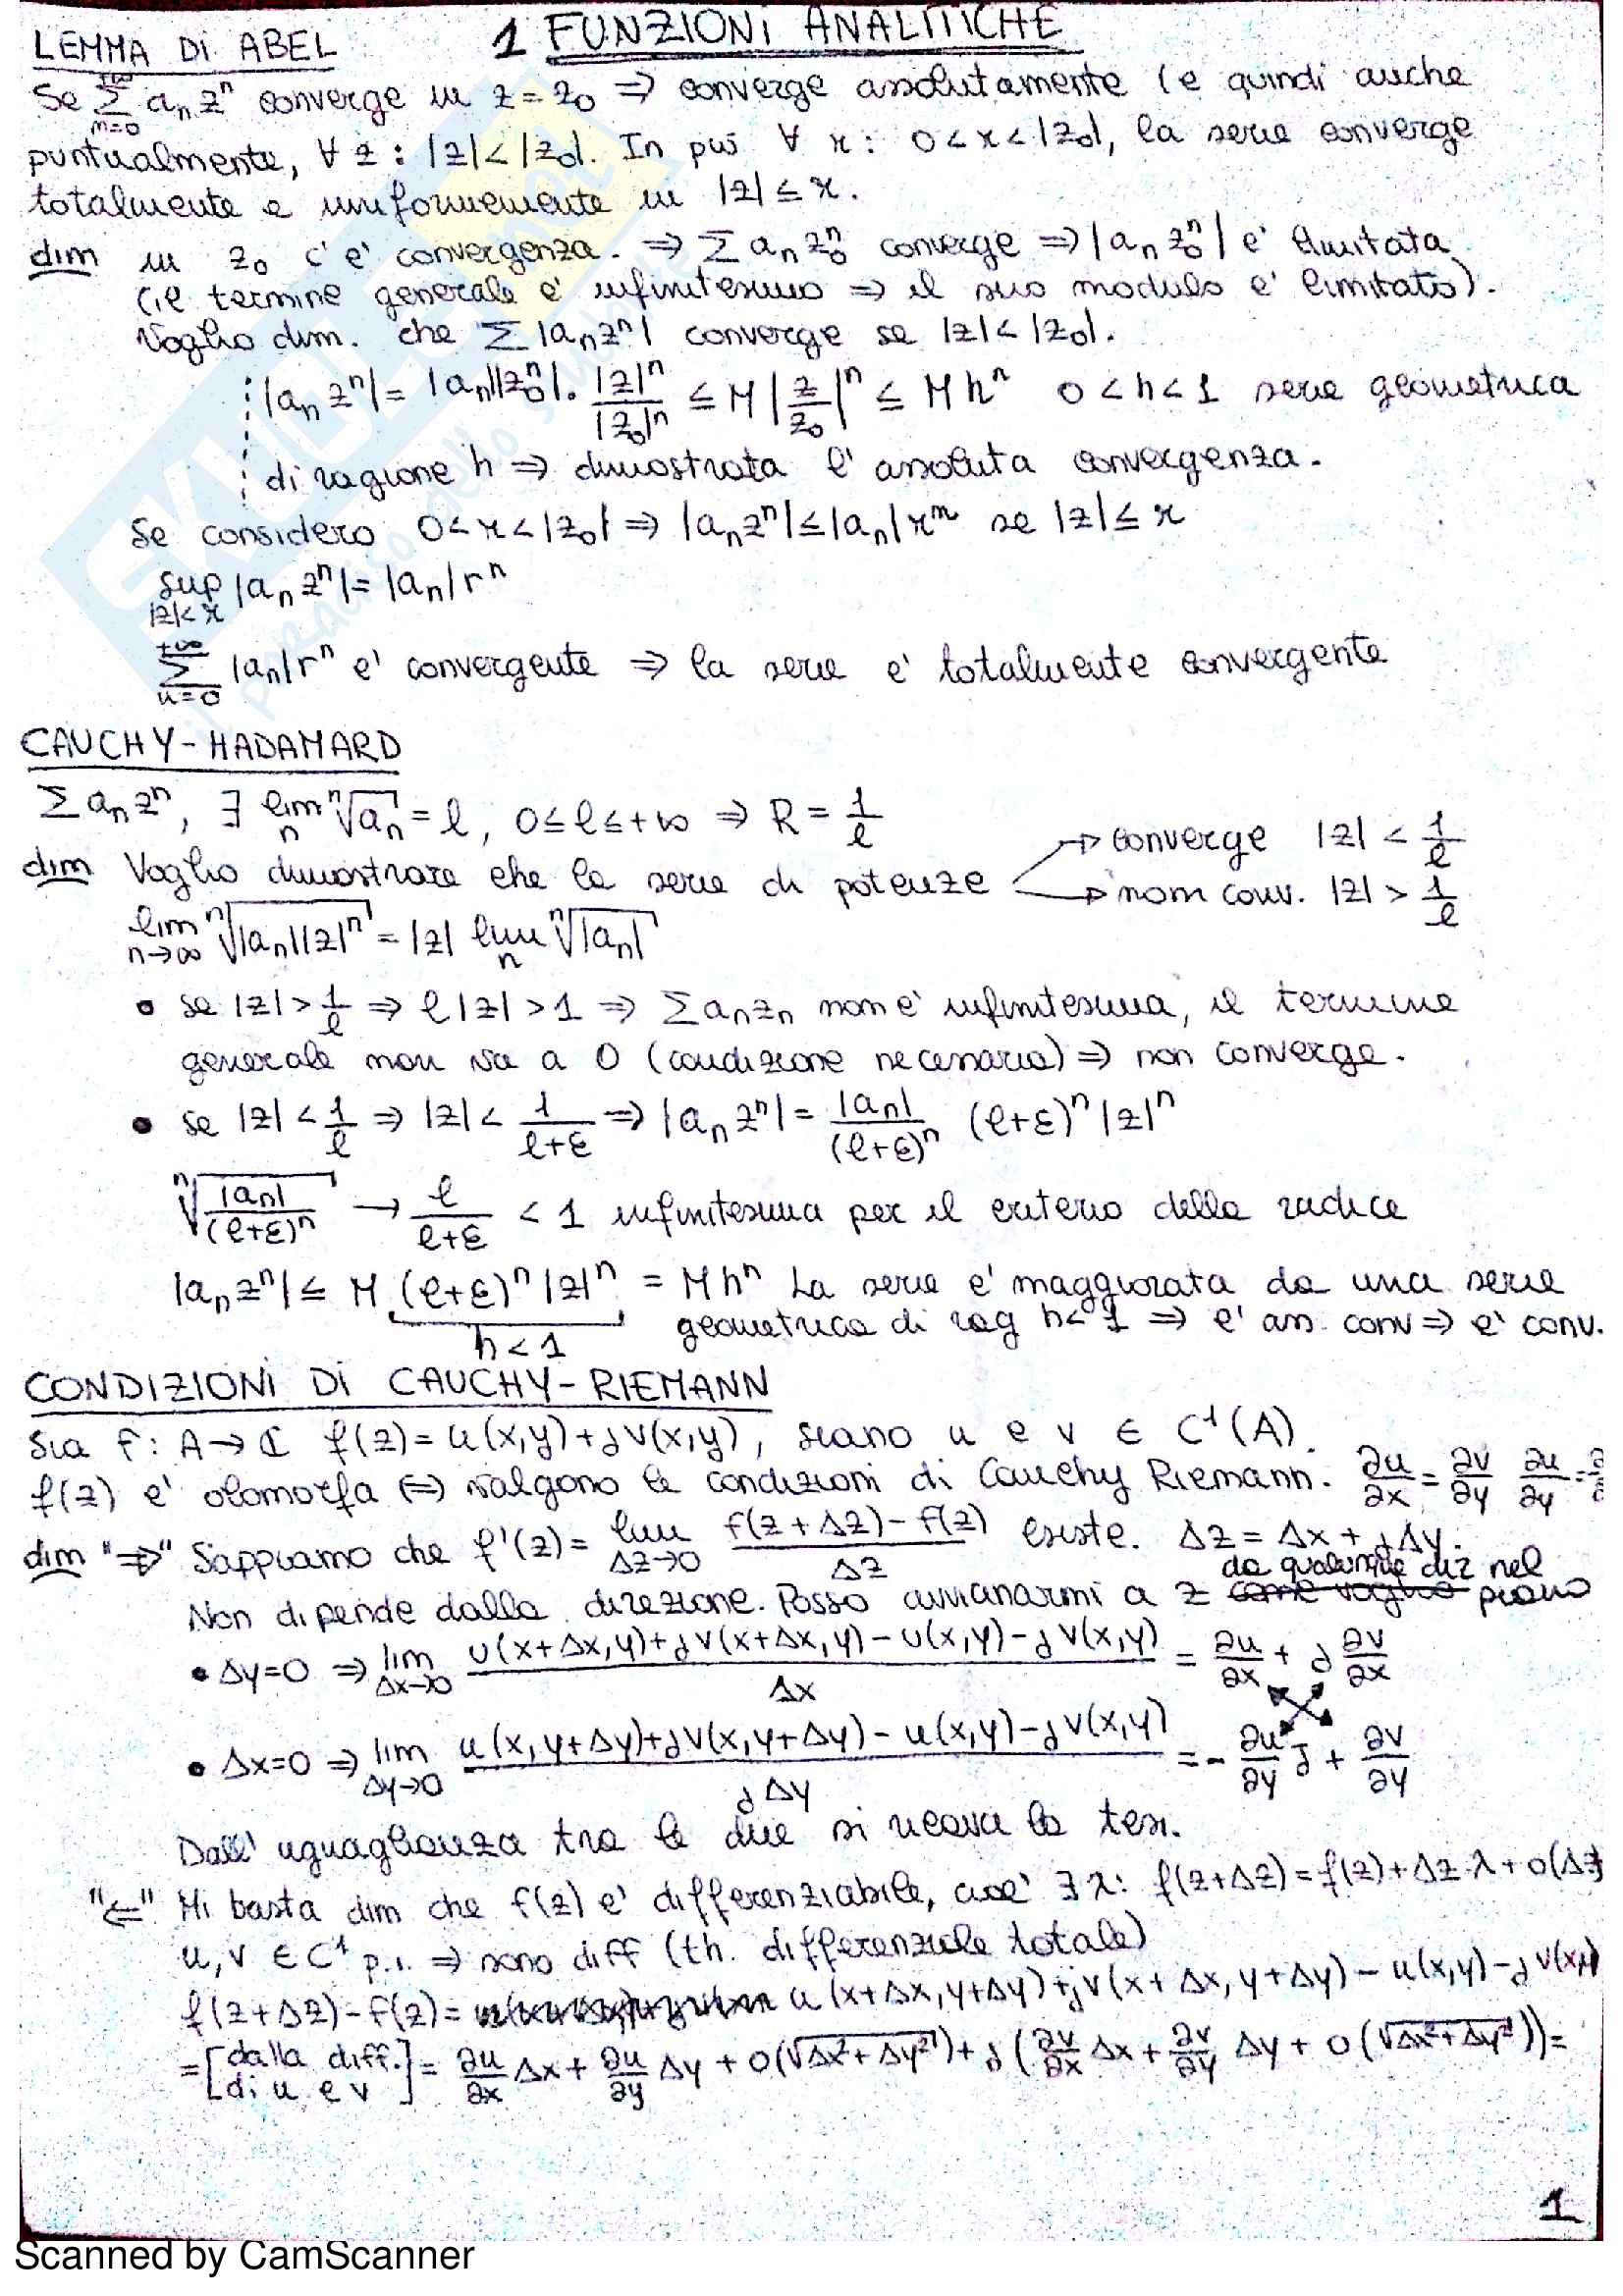 1 FUNZIONI ANALITICHE
LEMMA DI ABEL
Se Σ_{n=0}^{+∞} aₙzⁿ converge in z=z₀ ⇒ converge assolutamente (e quindi anche
puntualmente, ∀ z : |z|<|z₀|. In più ∀ r : 0<r<|z₀|, la serie converge
totalmente e uniformemente in |z|≤r.
dim in z₀ c'è convergenza. ⇒ Σ aₙz₀ⁿ converge ⇒ |aₙz₀ⁿ| è limitata
(il termine generale è infinitesimo ⇒ il suo modulo è limitato).
Voglio dim. che Σ|aₙzⁿ| converge se |z|<|z₀|.
|aₙzⁿ| = |aₙ||z₀ⁿ|· |z|ⁿ/|z₀|ⁿ ≤ M |z/z₀|ⁿ ≤ M hⁿ 0<h<1 serie geometrica
di ragione h ⇒ dimostrata l'assoluta convergenza.
Se considero 0<r<|z₀| ⇒ |aₙzⁿ| ≤ |aₙ|rⁿ se |z|≤r
sup_{|z|<r} |aₙzⁿ| = |aₙ|rⁿ
Σ_{n=0}^{+∞} |aₙ|rⁿ è convergente ⇒ la serie è totalmente convergente
CAUCHY-HADAMARD
Σ aₙzⁿ, ∃ lim_n ⁿ√aₙ = l, 0≤l≤+∞ ⇒ R = 1/l
dim Voglio dimostrare che la serie di potenze → converge |z| < 1/l
→ non conv. |z| > 1/l
lim_{n→∞} ⁿ√(|aₙ||z|ⁿ) = |z| lim_n ⁿ√|aₙ|
• se |z| > 1/l ⇒ l|z| > 1 ⇒ Σaₙzₙ non è infinitesima, il termine
generale non va a 0 (condizione necessaria) ⇒ non converge.
• se |z| < 1/l ⇒ |z| < 1/(l+ε) ⇒ |aₙzⁿ| = |aₙ|/(l+ε)ⁿ (l+ε)ⁿ|z|ⁿ
ⁿ√(|aₙ|/(l+ε)ⁿ) → l/(l+ε) < 1 infinitesima per il criterio della radice
|aₙzⁿ| ≤ M (l+ε)ⁿ|z|ⁿ = Mhⁿ La serie è maggiorata da una serie
h<1 geometrica di rag h<1 ⇒ è ass. conv ⇒ è conv.
CONDIZIONI DI CAUCHY-RIEMANN
Sia f: A→ℂ f(z) = u(x,y)+jv(x,y), siano u e v ∈ C¹(A).
f(z) è olomorfa ⇔ valgono le condizioni di Cauchy Riemann. ∂u/∂x = ∂v/∂y ∂u/∂y =
dim "⇒" Sappiamo che f'(z) = lim_{Δz→0} (f(z+Δz)-f(z))/Δz esiste. Δz = Δx+jΔy.
da qualunque diz nel
Non dipende dalla direzione. Posso avvicinarmi a z come voglio piano
• Δy=0 ⇒ lim_{Δx→0} (u(x+Δx,y)+jv(x+Δx,y)-u(x,y)-jv(x,y))/Δx = ∂u/∂x + j ∂v/∂x
• Δx=0 ⇒ lim_{Δy→0} (u(x,y+Δy)+jv(x,y+Δy)-u(x,y)-jv(x,y))/jΔy = - ∂u/∂y j + ∂v/∂y
Dall'uguaglianza tra le due si ricava la tesi.
"⇐" Mi basta dim che f(z) è differenziabile, cioè ∃ λ: f(z+Δz) = f(z)+Δz·λ+o(Δz
u,v ∈ C¹ p.i. ⇒ sono diff (th. differenziale totale)
f(z+Δz)-f(z) = u(x+Δx,y+Δy)+jv(x+Δx,y+Δy)-u(x,y)-jv(x,y)
=[dalla diff. di u e v] = ∂u/∂x Δx + ∂u/∂y Δy + o(√(Δx²+Δy²)) + j(∂v/∂x Δx + ∂v/∂y Δy + o(√(Δx²+Δy²)) =
1
Scanned by CamScanner